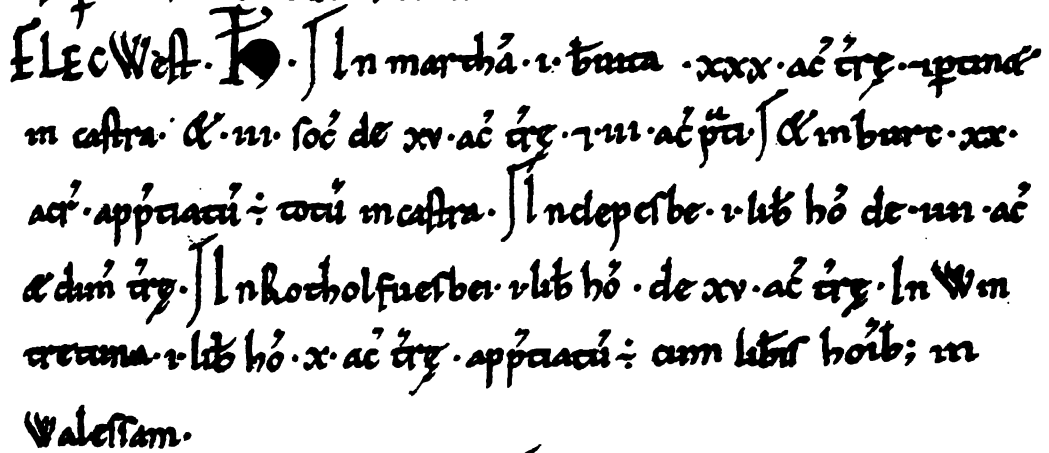 FLEC West · H̃ · ſ In marthā · ı · b̃uita · xxx · ac̄ t̃rę · ⁊ ꝑtin&
in caſtra · & · iii · ſoc̄ de xv · ac̄ t̃rę · ⁊ · iii · ac̄ p̃ti · ſ & in burc · xx ·
acr̃ · app̃tiatū ÷ totū in caſtra · ſ In clepeſbe · ı · lib̃ hõ de · iiii · ac̄
& dim̃ t̃rę · ſ In Rotholfueſbei · ı · lib̃ hõ · de xv · ac̄ t̃rę · In Win
tretuna · ı · lib̃ hõ · x · ac̄ t̃rę · app̃tiatū ÷ cum lib̃iſ hoĩb; in
Waleſſam ·